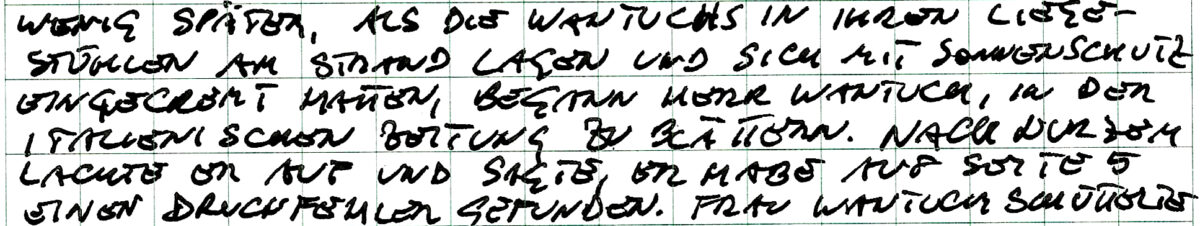 WENIG SPÄTER, ALS DIE WANTUCHS IN IHREN LIEGE-
STÜHLEN AM STRAND LAGEN UND SICH MIT SONNENSCHUTZ
EINGECREMT HATTEN, BEGANN HERR WANTUCH, IN DER
ITALIENISCHEN ZEITUNG ZU BLÄTTERN. NACH KURZEM
LACHTE ER AUF UND SAGTE, ER HABE AUF SEITE 5
EINEN DRUCKFEHLER GEFUNDEN. FRAU WANTUCH SCHÜTTELTE